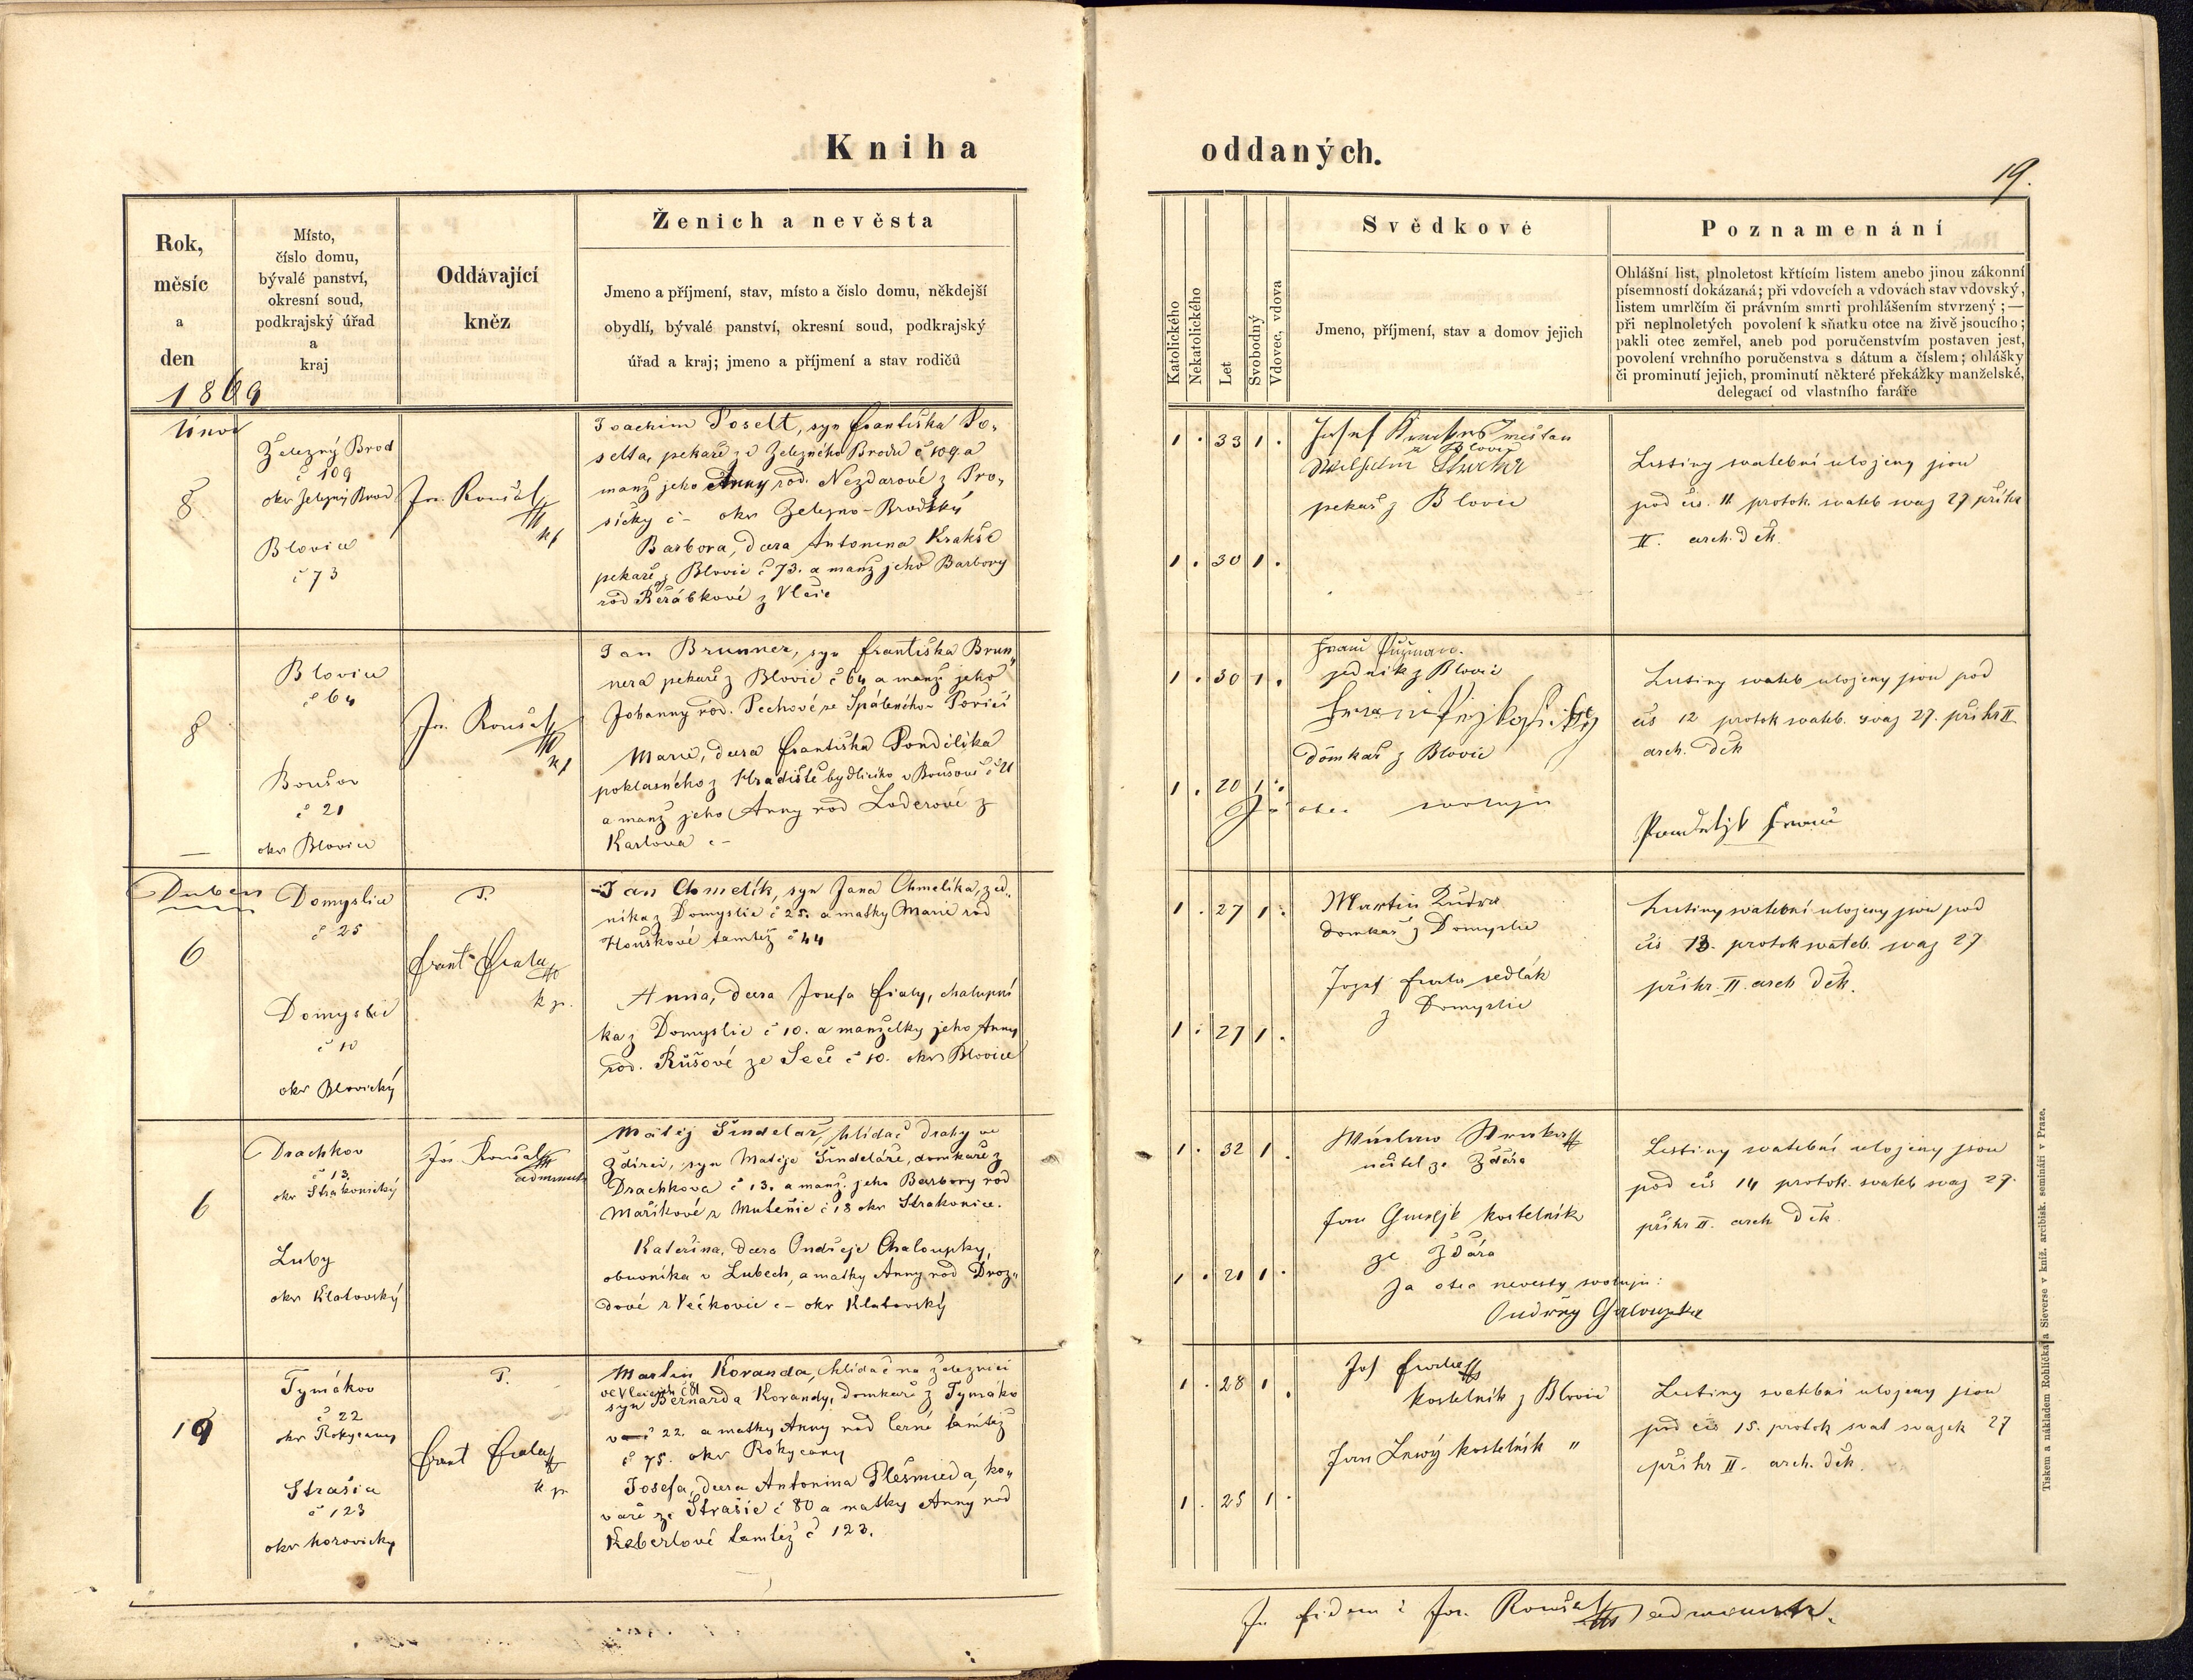 Kniha
oddaných.
19.
Rok,
měsíc
a
den
1869
Místo,
číslo domu,
bývalé panství,
okresní soud,
podkrajský úřad
a
kraj
Oddávající
kněz
Ženich a nevěsta
Jmeno a příjmení, stav, místo a číslo domu, někdejší
obydlí, bývalé panství, okresní soud, podkrajský
úřad a kraj; jmeno a příjmení a stav rodičů
Katolického
Nekatolického
Let
Svobodný
Vdovec, vdova
Svědkové
Jmeno, příjmení, stav a domov jejich
Poznamenání
Ohlášní list, plnoletost křtícím listem anebo jinou zákonní
písemností dokázaná; při vdovcích a vdovách stav vdovský,
listem umrlčím či právním smrti prohlášením stvrzený; —
při neplnoletých povolení k sňatku otce na živě jsoucího;
pakli otec zemřel, aneb pod poručenstvím postaven jest,
povolení vrchního poručenstva s dátum a číslem; ohlášky
či prominutí jejich, prominutí některé překážky manželské,
delegací od vlastního faráře
Únor
8
Železný Brod
č 109
okr Železný Brod
Blovice
č 73
Jos. Roušal
Joachim Poselt, syn Františka Po„
selta, pekaře z Železného Brodu č 109. a
manž jeho Anny rod. Nezdarové z Pro„
síčky č – okr Železno-Brodský
Barbora, dcera Antonína Krakše
pekaře z Blovic č 73. a manž jeho Barbory
rod Řeřábkové z Vlčic
1 . 33 1 .
1 . 30 1 .
Josef
měštan
z Blovic
pekař z Blovic
Listiny svatební uloženy jsou
pod čís. 11 protok. svateb svaz 27 přihr
II. arch. děk.
8
Blovice
č 64
Boušov
č 21
okr Blovice
Jos. Roušal
Jan Brunner, syn Františka Brun„
nera pekaře z Blovic č 64 a manž jeho
Johanny rod. Pechové ze Spáleného Poříčí
Marie, dcera Františka Pondělíka
poklasného z Hradiště bydlícího v Boušově č 21
a manž jeho Anny rod Loderové z
Karlova č –
1 . 30 1 .
1 . 20 1 .
jedník z Blovic
domkař z Blovic
Já otec svoluju
Listiny svateb uloženy jsou pod
čís 12 protok svateb. svaz 27. přihr II
arch. děk
Duben
6
Domyslice
č 25
Domyslice
č 10
okr Blovický
P.
Frant Fiala
k p.
Jan Chmelík, syn Jana Chmelíka, zed„
níka z Domyslic č 25. a matky Marie rod
Houškové tamtéž č 44
Anna, dcera Josefa Fialy, chalupní
ka z Domyslic č 10. a manželky jeho Anny
rod. Růšové ze Seče č 10. okr Blovice
1 . 27 1 .
1 . 27 1 .
Martin Kudra
domkař z Domyslic
Jozef Fiala sedlák
z Domyslic
Listiny svatební uloženy jsou pod
čís 13. protok svateb svaz 27
přihr. II. arch děk.
6
Drachkov
č 13
okr Strakonický
Luby
okr Klatovský
Jos. Roušal
administr
Matěj Šindelař, hlídač dráhy ve
Ždírci, syn Matěje Šindeláře, domkaře z
Drachkova č 13. a manž. jeho Barbory rod
Maříkové z Mutěnic č 18 okr Strakonice.
Kateřina, dcera Ondřeje Chaloupky,
obuvníka v Lubech, a matky Anny rod Droz„
dové z Věčkovic č – okr Klatovský
1 . 32 1 .
1 . 21 1 .
učitel ze Ždára
kostelník
ze Ždára
Ja otec nevesty svoluju:
Listiny svatební uloženy jsou
pod čís 14 protok. svateb svaz 27.
přihr II. arch děk.
19
Tymákov
č 22
okr Rokycany
Strašice
č 123
okr horovicky
P.
Frant Fiala
k p.
Martin Koranda, hlídač na železnici
ve Vlčicích č 81
syn Bernarda Korandy, domkaře z Tymáko
va č 22. a matky Anny rod Černé tamtéž
č 75. okr Rokycany
Josefa, dcera Antonína Plešmída, ko„
váře ze Strašic č 80 a matky Anny rod
Keberlové tamtéž č 123.
1 . 28 1 .
1 . 25 1 .
Jos Fiala
kostelník z Blovic
Jan Lnový kostelník "
Listiny svatební uloženy jsou
pod čís 15. protok svat svazek 27
přihr II. arch. děk.
In fidem: Jos. Roušal administr.
Tiskem a nákladem Rohlíčka a Sieverse v kníž. arcibisk. semináři v Praze.